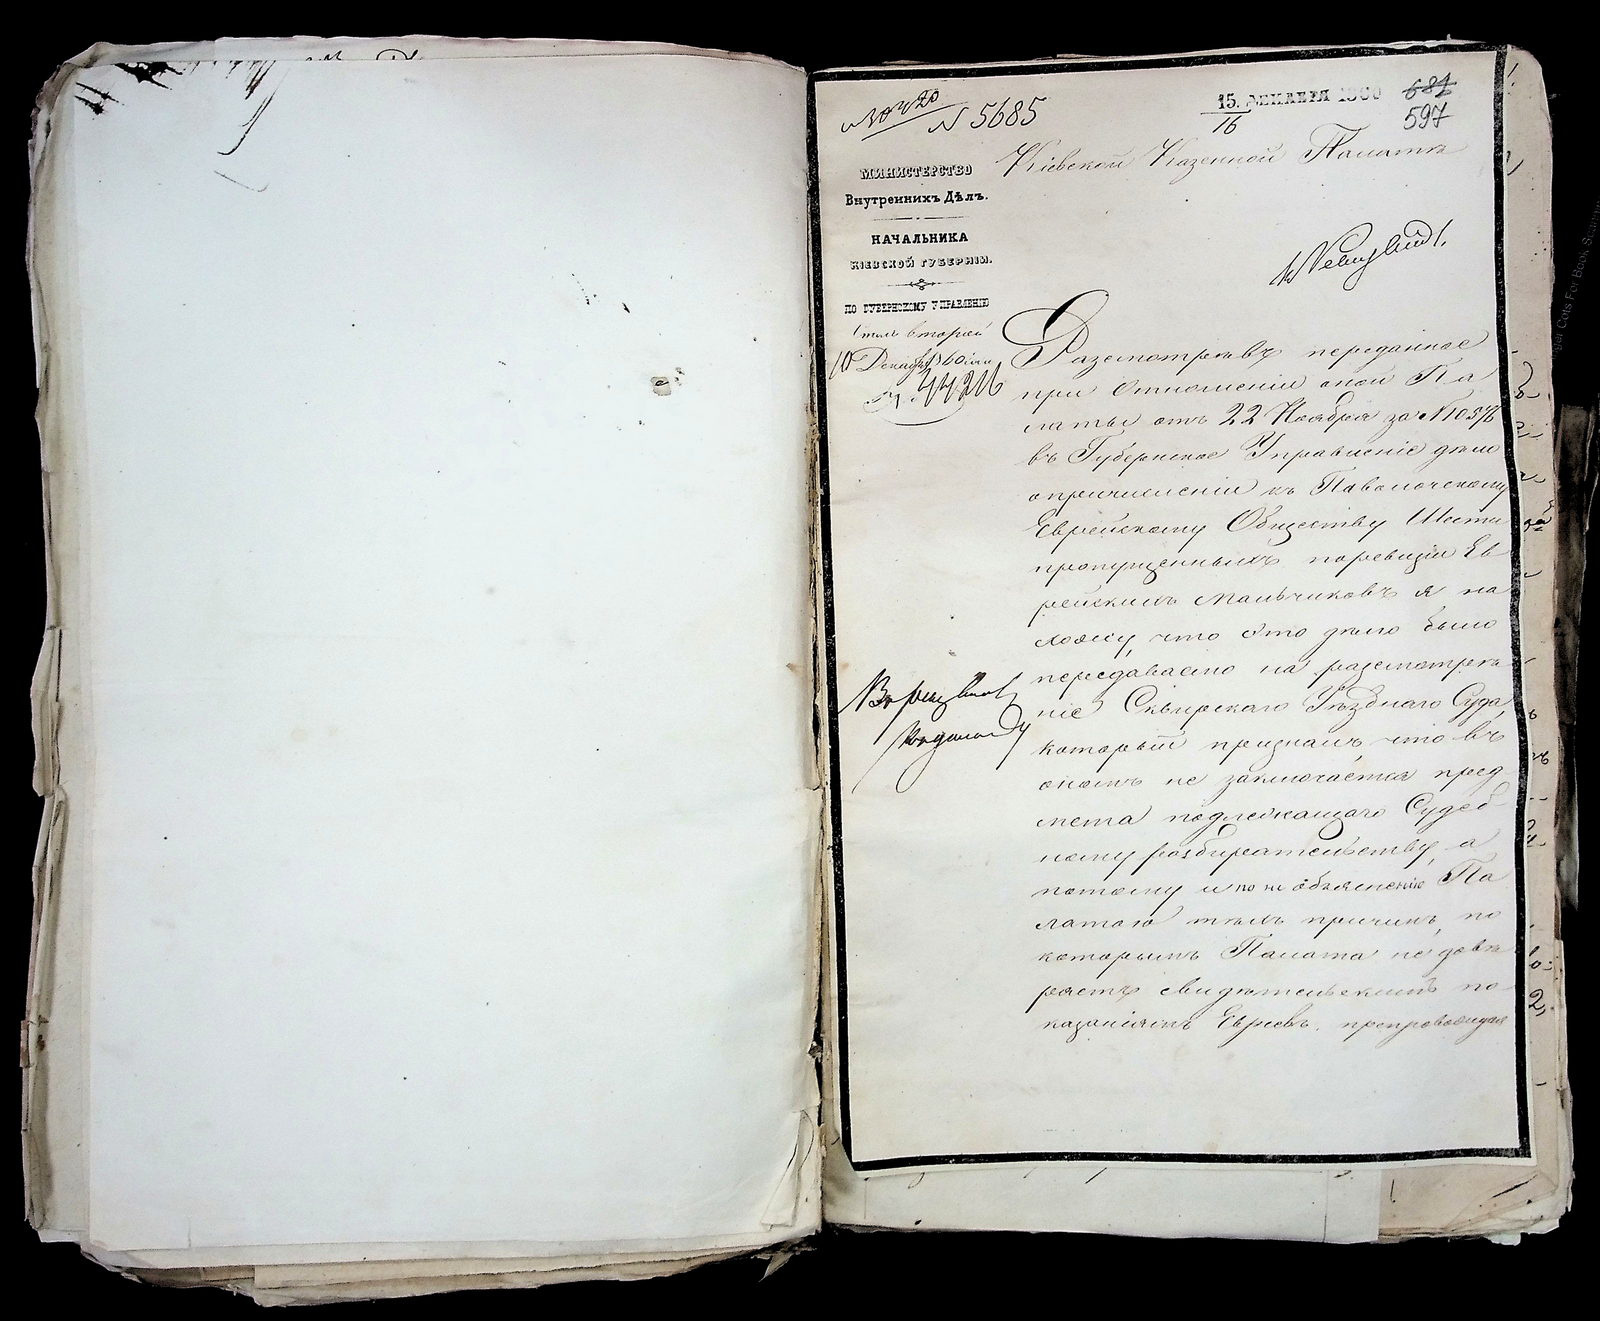 № 5685
15. ДЕКАБРЯ 1860
16
681
597
Кіевской Казенной Палатѣ
МИНИСТЕРСТВО
Внутреннихъ Дѣлъ.
НАЧАЛЬНИКА
КІЕВСКОЙ ГУБЕРНІИ.
ПО ГУБЕРНСКОМУ УПРАВЛЕНІЮ
Столъ второй
10 Декабря 1860 года
Разсмотрѣвъ переданное
при отношеніи оной Па
латы отъ 22 Ноября за №
въ Губернское Управленіе дѣло
о причисленіи къ Паволочскому
Еврейскому Обществу Шести
пропущенныхъ по ревизіи Ев
рейскихъ мальчиковъ я на
хожу, что это дѣло было
передаваемо на разсмотрѣ
ніе Сквирскаго Уѣзднаго Суда,
который призналъ, что въ
ономъ не заключается пред
мета подлежащаго Судеб
ному разбирательству, а
потому и по не объясненію Па
латою тѣхъ причинъ, по
которымъ Палата не довѣ
ряетъ свидѣтельскимъ по
казаніямъ Евреевъ, препровождая